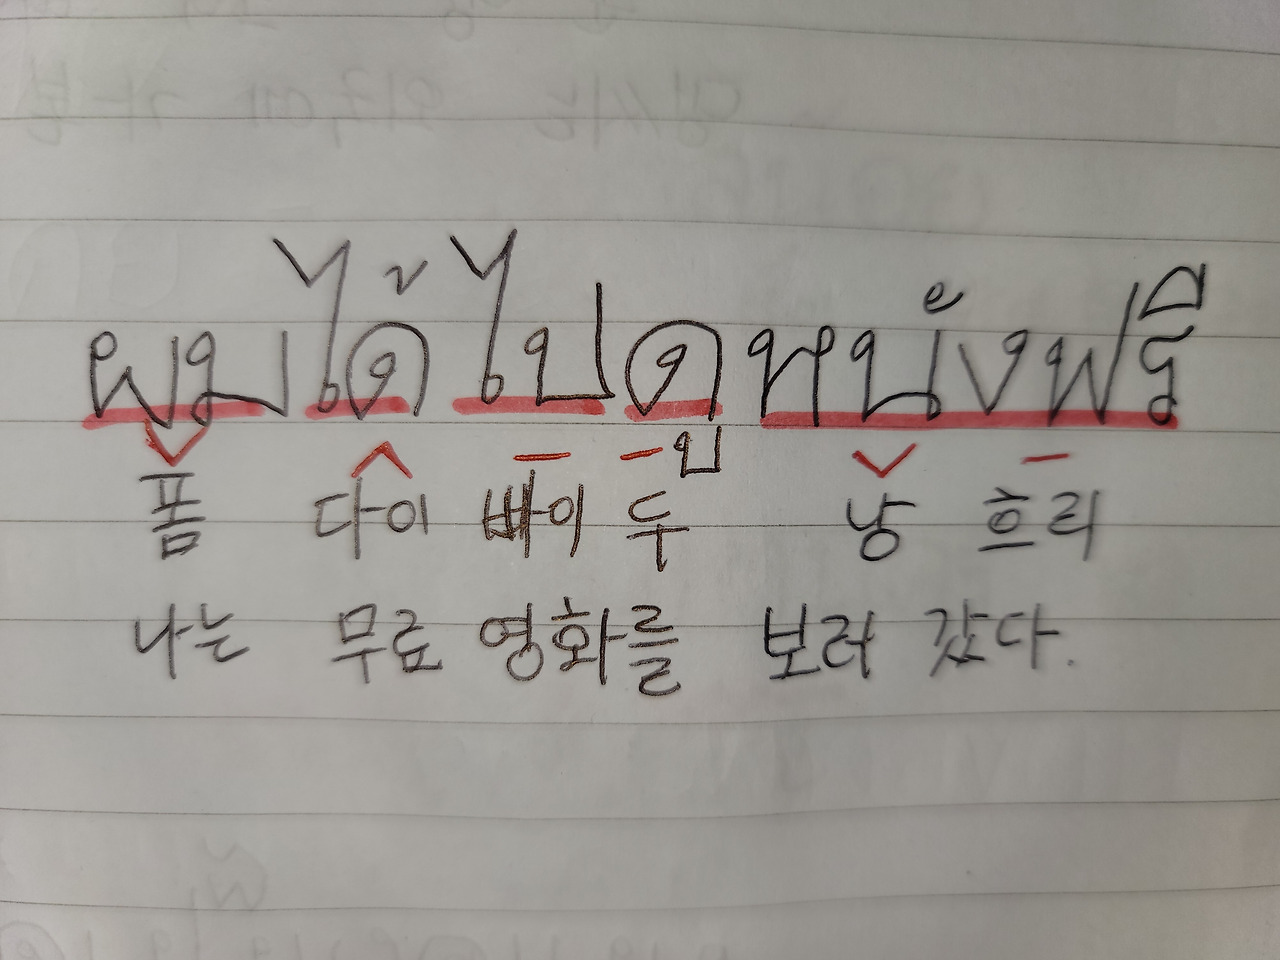 ผมได้ไปดูหนังฟรี
폼 다이 빠이 두 낭 흐리
나는 무료 영화를 보러 갔다.